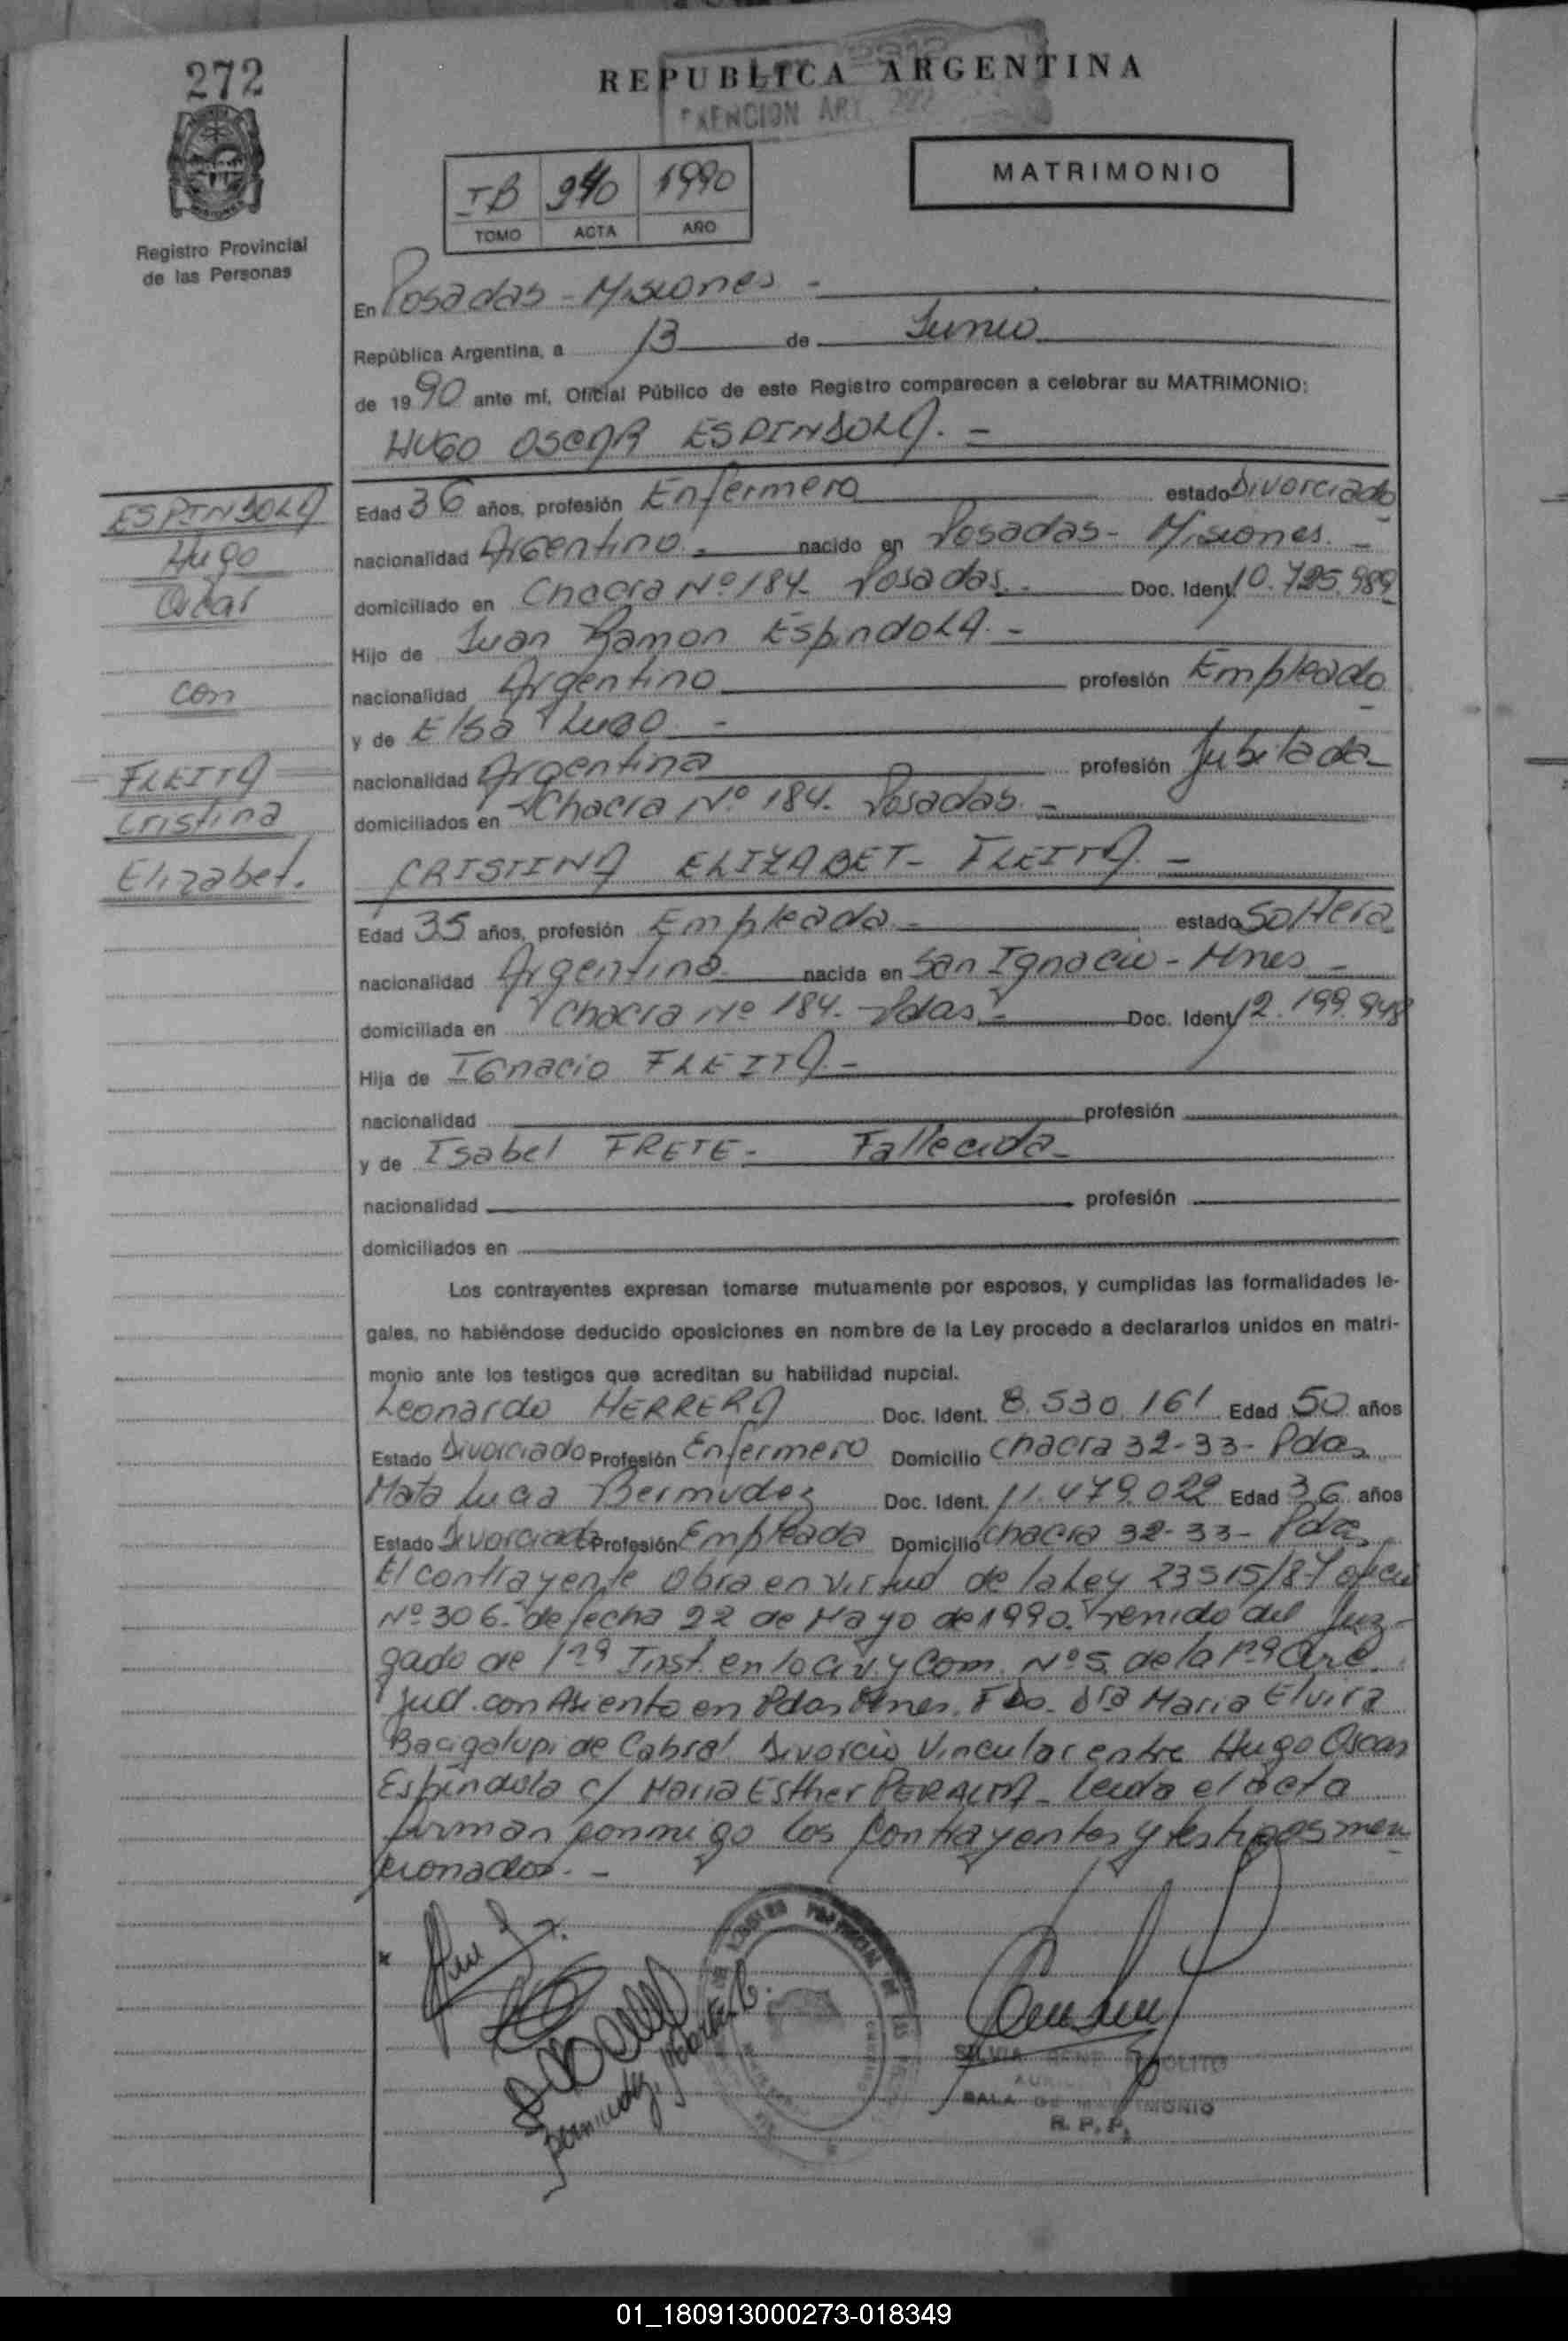 272
REPUBLICA ARGENTINA
EXENCION ART. 292
MATRIMONIO
IB 940 1990
TOMO ACTA AÑO
Registro Provincial
de las Personas
En Posadas - Misiones -
República Argentina, a 13 de Junio
de 1990 ante mí, Oficial Público de este Registro comparecen a celebrar su MATRIMONIO:
HUGO OSCAR ESPINDOLA. -
ESPINDOLA
Hugo
Oscar
con
FLEITA
Cristina
Elizabet.
Edad 36 años, profesión Enfermero estado Divorciado
nacionalidad Argentino. - nacido en Posadas - Misiones. -
domiciliado en Chacra Nº 184 Posadas. - Doc. Ident. 10.725.989
Hijo de Juan Ramon EspindoLA. -
nacionalidad Argentino profesión Empleado
y de Elsa Lugo -
nacionalidad Argentina profesión Jubilada
domiciliados en Chacra Nº 184. Posadas. -
CRISTINA ELIZABET - FLEITA. -
Edad 35 años, profesión Empleada - estado Soltera
nacionalidad Argentina nacida en San Ignacio - Mnes -
domiciliada en Chacra Nº 184. Pdas - Doc. Ident. 12.199.948
Hija de IGnacio FLEITA. -
nacionalidad profesión
y de Isabel FRETE - Fallecida
nacionalidad profesión
domiciliados en
Los contrayentes expresan tomarse mutuamente por esposos, y cumplidas las formalidades le-
gales, no habiéndose deducido oposiciones en nombre de la Ley procedo a declararlos unidos en matri-
monio ante los testigos que acreditan su habilidad nupcial.
Leonardo HERRERA Doc. Ident. 8.530.161 Edad 50 años
Estado Divorciado Profesión Enfermero Domicilio Chacra 32-33 - Pdas
Mata Lucia Bermudez Doc. Ident. 11.479.022 Edad 36 años
Estado Divorciada Profesión Empleada Domicilio Chacra 32-33 - Pdas
El contrayente obra en virtud de la Ley 23515/87 oficio
Nº 306. de fecha 22 de Mayo de 1990. venido del Juz-
gado de 1ra Inst. en lo Civ. y Com. Nº 5 de la 1ra Circ.
Jud. con Asiento en Pdas Mnes. Fdo. Dra Maria Elvira
Bacigalupi de Cabral Divorcio Vincular entre Hugo Oscar
Espindola c/ Maria Esther PERALTA - Leida el acta
firman conmigo los contrayentes y testigos men
cionados. -
SILVIA RENE
SALA DE MATRIMONIO
R. P. P.
01_180913000273-018349